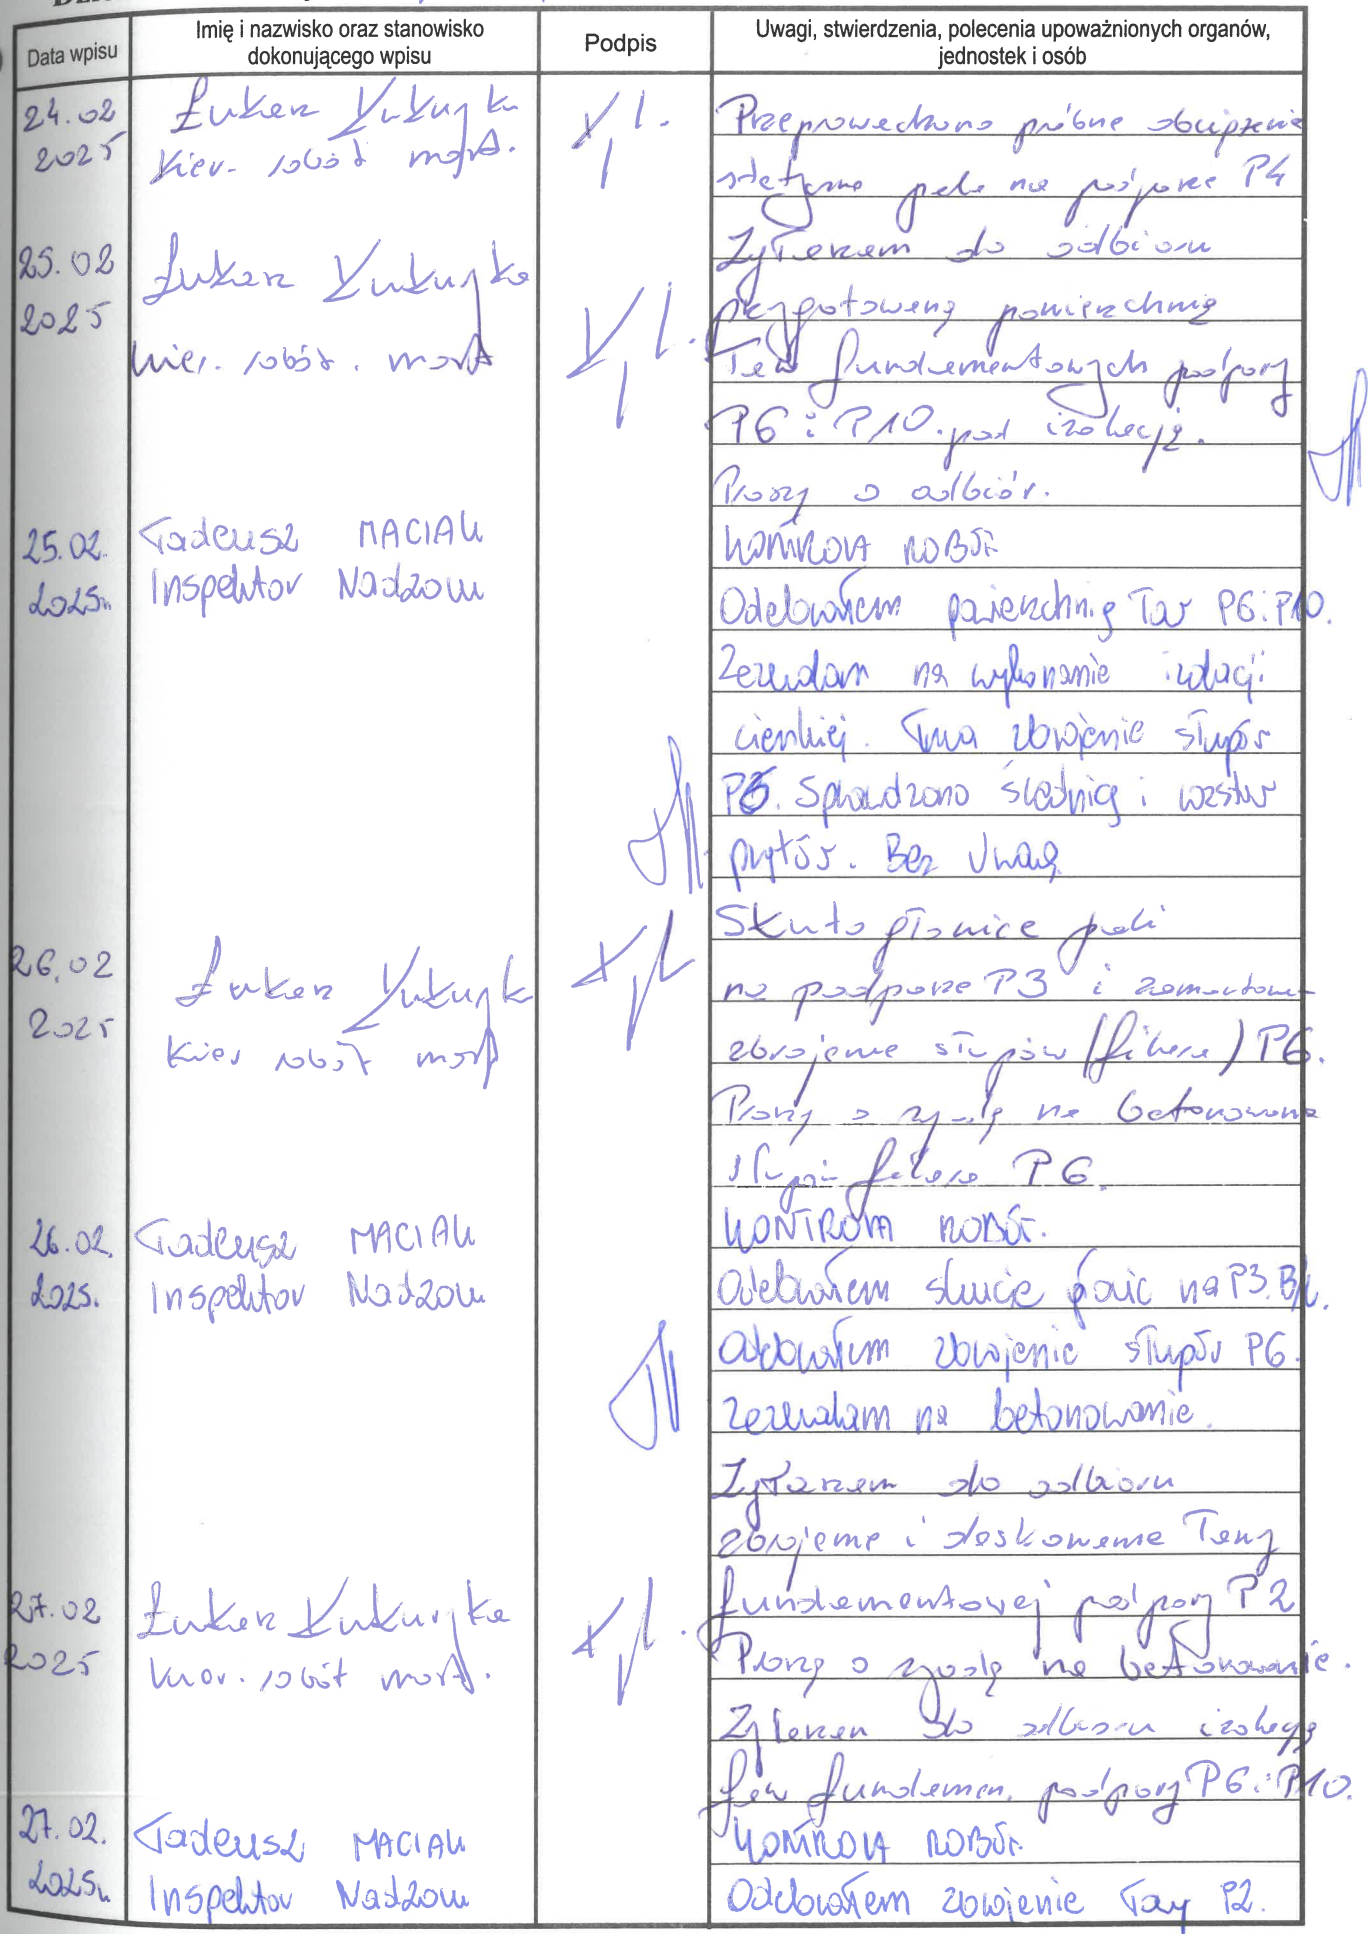 Data wpisu
Imię i nazwisko oraz stanowisko
dokonującego wpisu
Podpis
Uwagi, stwierdzenia, polecenia upoważnionych organów,
jednostek i osób
24.02
2025
Łukasz Kukuryka
Kier. robót most.
Przeprowadzono próbne obciążenie
statyczne pala na podporze P4
25.02
2025
Łukasz Kukuryka
kier. robót. most
Zgłaszam do odbioru
przygotowaną powierzchnię
ław fundamentowych podpory
P6 i P10. pod izolację.
Proszę o odbiór.
25.02.
2025r.
Tadeusz MACIAK
Inspektor Nadzoru
KONTROLA ROBÓT.
Odebrałem powierzchnię ław P6 i P10.
Zezwalam na wykonanie izolacji
cienkiej. Trwa zbrojenie słupów
P6. Sprawdzono średnicę i rozstaw
prętów. Bez Uwag.
26.02
2025
Łukasz Kukuryk
Kier robót most
Skuto głowice pali
na podporze P3 i zamontowa-
zbrojenie słupów (filara) P6.
Proszę o zgodę na betonowanie
filara P6.
26.02.
2025.
Tadeusz MACIAK
Inspektor Nadzoru
KONTROLA ROBÓT.
Odebrałem skucie głowic na P3. B/U.
Odebrałem zbrojenie słupów P6.
Zezwalam na betonowanie.
27.02
2025
Łukasz Kukuryka
Kier. robót most.
Zgłaszam do odbioru
zbrojenie i deskowanie ławy
fundamentowej podpory P2
Proszę o zgodę na betonowanie.
Zgłaszam do odbioru izolację
ław fundamen. podpory P6 i P10.
27.02.
2025r.
Tadeusz MACIAK
Inspektor Nadzoru
KONTROLA ROBÓT.
Odebrałem zbrojenie ławy P2.